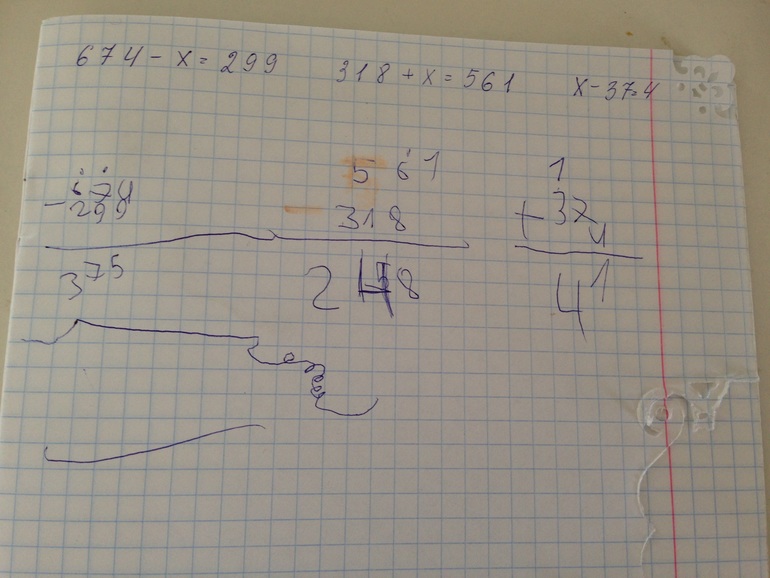 674 - x = 299 318 + x = 561 x - 37 = 4
1
674 561 + 37
- 299 - 318 4
375 248 41